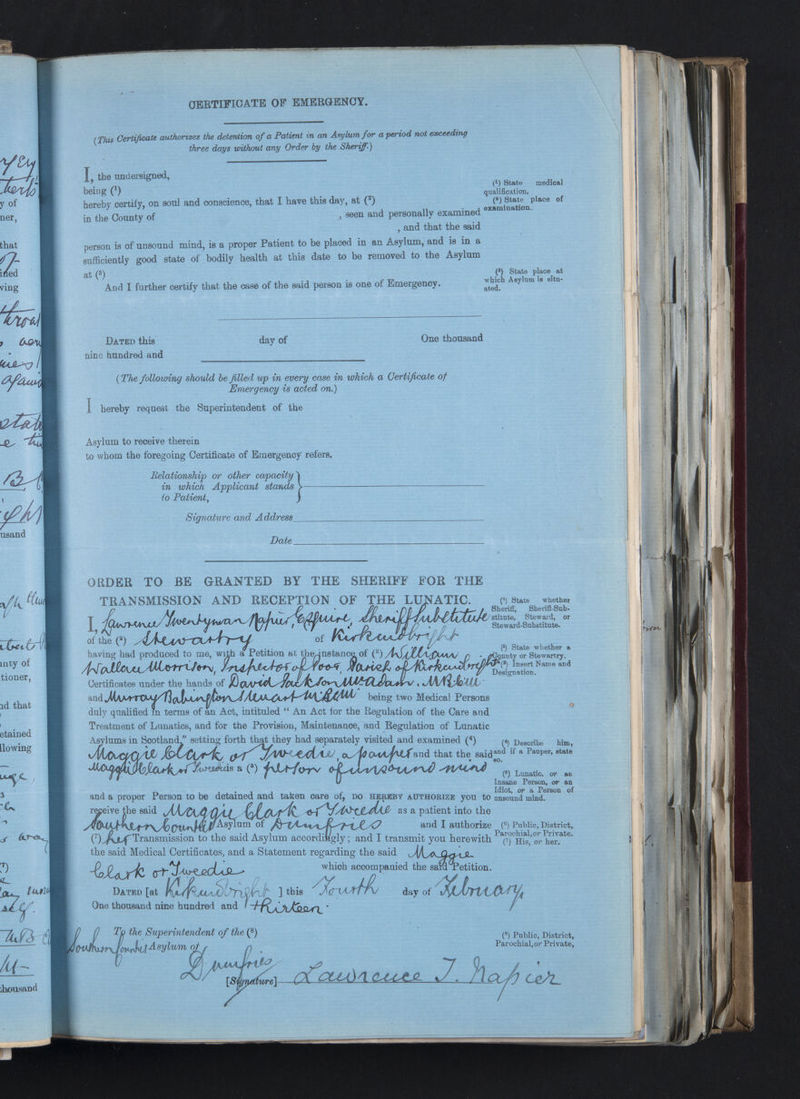 CERTIFICATE OF EMERGENCY.
(This Certificate authorizes the detention of a Patient in an Asylum for a period not exceeding
three days without any Order by the Sheriff.)
I, the undersigned,
being (¹)
hereby certify, on soul and conscience, that I have this day, at (²)
in the County of , seen and personally examined
, and that the said
person is of unsound mind, is a proper Patient to be placed in an Asylum, and is in a
sufficiently good state of bodily health at this date to be removed to the Asylum
at (³)
And I further certify that the case of the said person is one of Emergency.
(¹) State medical
qualification.
(²) State place of
examination.
(³) State place at
which Asylum is situ-
ated.
DATED this day of One thousand
nine hundred and
(The following should be filled up in every case in which a Certificate of
Emergency is acted on.)
I hereby request the Superintendent of the
Asylum to receive therein
to whom the foregoing Certificate of Emergency refers.
Relationship or other capacity
in which Applicant stands
to Patient,
Signature and Address
Date
ORDER TO BE GRANTED BY THE SHERIFF FOR THE
TRANSMISSION AND RECEPTION OF THE LUNATIC.
I, Lawrence Twentyman Napier, Esquire, Sheriff Substitute
of the (²) Stewartry of Kirkcudbright
having had produced to me, with a Petition at the instance of (³) William
Wallace Morrison, Inspector of Poor, Parish of Kirkcudbright
Certificates under the hands of David Jackson McAdam, M.B. &c
and Murray Babington Stuart M.B. &c being two Medical Persons
duly qualified in terms of an Act, intituled " An Act for the Regulation of the Care and
Treatment of Lunatics, and for the Provision, Maintenance, and Regulation of Lunatic
Asylums in Scotland," setting forth that they had separately visited and examined (⁴)
Maggie Clark or Tweedie, a pauper and that the said
Maggie Clark or Tweedie is a (⁵) person of unsound mind
and a proper Person to be detained and taken care of, DO HEREBY AUTHORIZE you to
receive the said Maggie Clark or Tweedie as a patient into the
Southern Counties Asylum of Dumfries and I authorize
(⁷) her Transmission to the said Asylum accordingly; and I transmit you herewith
the said Medical Certificates, and a Statement regarding the said Maggie
Clark or Tweedie which accompanied the said Petition.
DATED [at Kirkcudbright ] this Fourth day of February
One thousand nine hundred and thirteen.
To the Superintendent of the (⁸)
Southern Counties Asylum of
Dumfries
[Signature] Lawrence T. Napier
(¹) State whether
Sheriff, Sheriff-Sub-
stitute, Steward, or
Steward-Substitute.
(²) State whether a
County or Stewartry.
(³) Insert Name and
Designation.
(⁴) Describe him,
and if a Pauper, state
so.
(⁵) Lunatic, or an
Insane Person, or an
Idiot, or a Person of
unsound mind.
(⁶) Public, District,
Parochial, or Private.
(⁷) His, or her.
(⁸) Public, District,
Parochial, or Private,
y of
ner,
that
ving
usand
nty of
tioner,
d that
etained
llowing
thousand